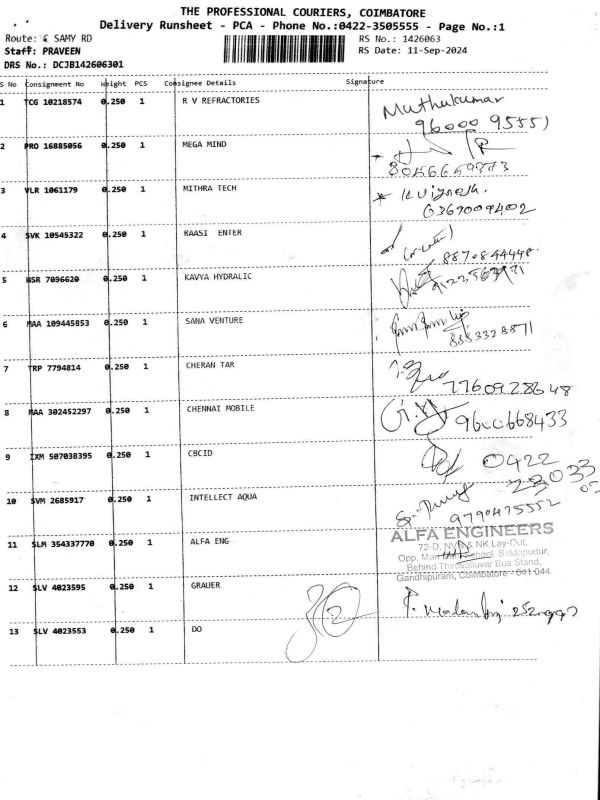 THE PROFESSIONAL COURIERS, COIMBATORE
Delivery Runsheet - PCA - Phone No.:0422-3505555 - Page No.:1
Route: SAMY RD
RS No.: 1426063
Staff: PRAVEEN
RS Date: 11-Sep-2024
DRS No.: DCJB142606301
S No Consignment No Weight PCS Consignee Details Signature
1 TCG 10218574 0.250 1 R V REFRACTORIES Muthukumar
96000 95551
2 PRO 16885056 0.250 1 MEGA MIND
3 VLR 1061179 0.250 1 MITHRA TECH
4 SVK 10545322 0.250 1 RAASI ENTER
8870844448
5 HSR 7096620 0.250 1 KAVYA HYDRALIC
6 MAA 109445853 0.250 1 SANA VENTURE
8883328871
7 TRP 7794814 0.250 1 CHERAN TAR
7760928648
8 MAA 302452297 0.250 1 CHENNAI MOBILE 9600668433
9 IXM 507038395 0.250 1 CBCID 0422
10 SVM 2685917 0.250 1 INTELLECT AQUA
9790475552
11 SLM 354337770 0.250 1 ALFA ENG
ALFA ENGINEERS
72-D, NVN & NK Lay-Out,
Opp. School, Siddapudur,
Behind Thiruvalluvar Bus Stand,
Gandhipuram, Coimbatore - 641 044.
12 SLV 4023595 0.250 1 GRAUER
13 SLV 4023553 0.250 1 DO